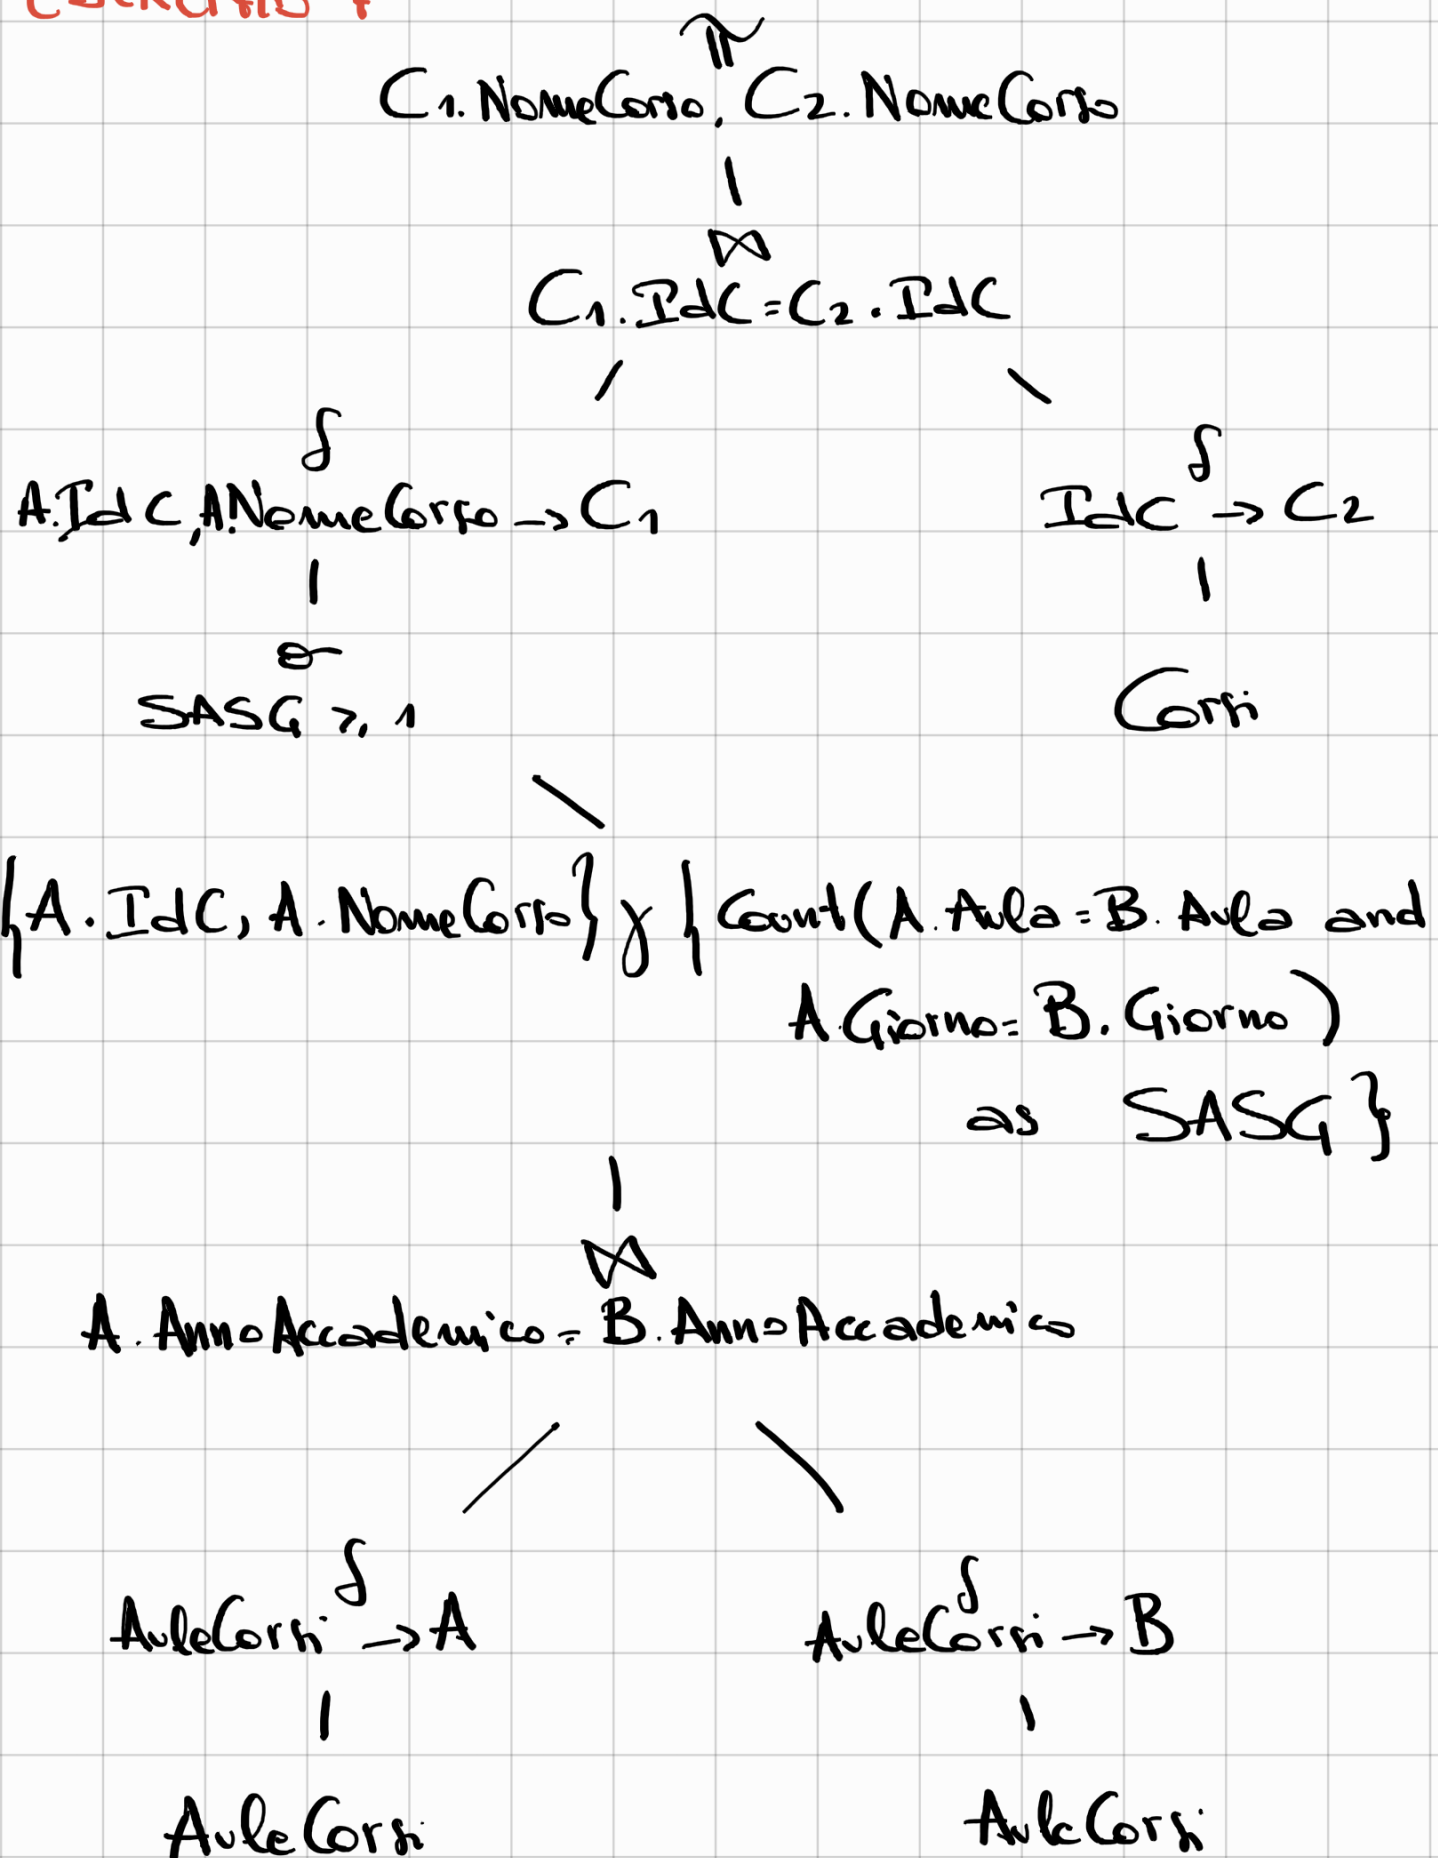 π
C1.NomeCorso, C2.NomeCorso
⋈
C1.IdC=C2.IdC
δ δ
A.IdC, A.NomeCorso → C1 IdC → C2
σ
SASG ⩾ 1 Corsi
{A.IdC, A.NomeCorso} γ {Count(A.Aula=B.Aula and
A.Giorno=B.Giorno)
as SASG}
⋈
A.AnnoAccademico=B.AnnoAccademico
δ δ
AuleCorsi → A AuleCorsi → B
AuleCorsi AuleCorsi